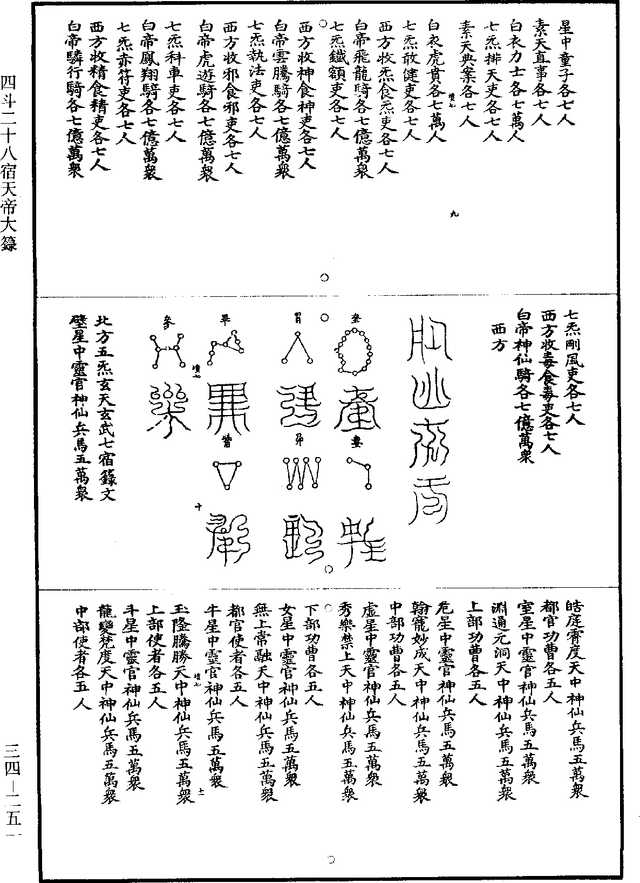 星中童子各七人
素天直事各七人
白衣力士各七萬人
七炁排天吏各七人
素天典案各七人
白衣虎賁各七萬人
七炁敢健吏各七人
西方收炁食炁吏各七人
白帝飛龍騎各七億萬衆
七炁鐵額吏各七人
西方收神食神吏各七人
白帝雲騰騎各七億萬衆
七炁執法吏各七人
西方收邪食邪吏各七人
白帝虎遊騎各七億萬衆
七炁科車吏各七人
白帝鳳翔騎各七億萬衆
七炁赤符吏各七人
西方收精食精吏各七人
白帝驎行騎各七億萬衆
九
七炁剛風吏各七人
西方收毒食毒吏各七人
白帝神仙騎各七億萬衆
西方
奎
婁
胃
昴
畢
觜
參
十
北方五炁玄天玄武七宿籙文
壁星中靈官神仙兵馬五萬衆
皓庭霄度天中神仙兵馬五萬衆
都官功曹各五人
室星中靈官神仙兵馬五萬衆
淵通元洞天中神仙兵馬五萬衆
上部功曹各五人
危星中靈官神仙兵馬五萬衆
翰寵妙成天中神仙兵馬五萬衆
中部功曹各五人
虛星中靈官神仙兵馬五萬衆
秀樂禁上天中神仙兵馬五萬衆
下部功曹各五人
女星中靈官神仙兵馬五萬衆
無上常融天中神仙兵馬五萬衆
都官使者各五人
牛星中靈官神仙兵馬五萬衆
玉隆騰勝天中神仙兵馬五萬衆
上部使者各五人
斗星中靈官神仙兵馬五萬衆
龍變梵度天中神仙兵馬五萬衆
中部使者各五人
十一
四斗二十八宿天帝大籙
三四—二五一